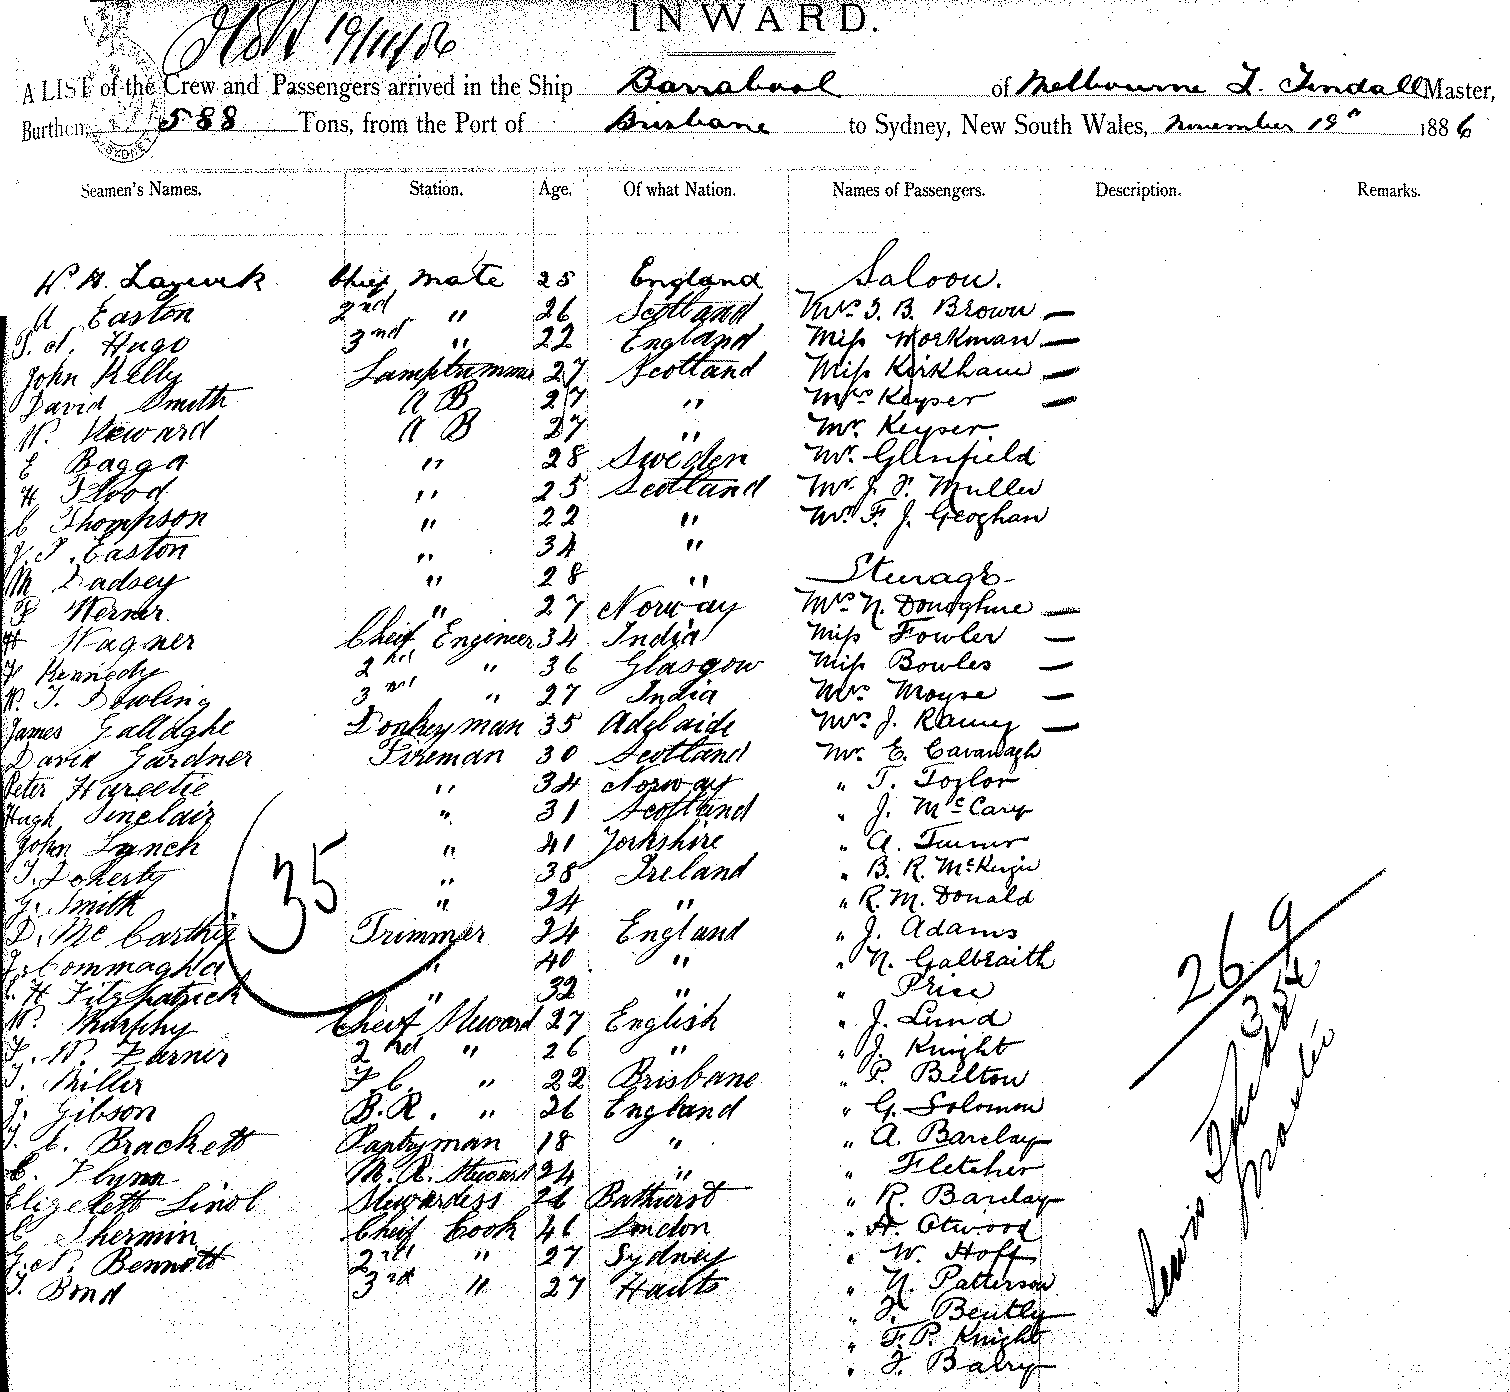 INWARD.
19/11/86
A LIST of the Crew and Passengers arrived in the Ship Barrabool of Melbourne T. Tindall Master,
Burthen, 588 Tons, from the Port of Brisbane to Sydney, New South Wales, November 19th 1886
Seamen's Names. Station. Age. Of what Nation. Names of Passengers. Description. Remarks.
W. H. Chief Mate 25 England Saloon.
A Easton 2nd " 26 Scotland Mrs T. B. Brown —
Hugo 3rd " 22 England Miss Workman —
John Kelly Lamptrimmer 27 Scotland Miss Kirkham —
David Smith A B 27 " Mrs Keyser —
W. Steward A B 27 " Mr. Keyser
E Bagga " 28 Sweden Mr. Glenfield
H Flood " 25 Scotland Mr. J. F. Muller
C Thompson " 22 " Mr. F. J. Geoghan
Easton " 34 "
M Ladsey " 28 " Steerage
Werner " 27 Norway Mrs N. Donoghue —
H Wagner Cheif Engineer 34 India Miss Fowler —
Kennedy 2nd " 36 Glasgow Miss Bowles —
W. T. Dowling 3rd " 27 India Mrs Moyse —
James Gallaghe Donkeyman 35 Adelaide Mrs J. Ramy —
David Gardner Fireman 30 Scotland Mr. E. Cavanagh
Peter " 34 Norway " T. Toylor
Hugh Sinclair " 31 Scotland " J. McCary
John Lynch " 41 Yorkshire " A. Turner
T. Doherty " 38 Ireland " B. R. McKenzie
G. Smith " 24 " " R. M. Donald
D. McCarthie Trimmer 24 England " J. Adams
J. Commagha " 40 " " N. Galbraith
H Fitzpatrick " 32 " " Price
W. Murphy Cheif Steward 27 English " J. Lund
W. Farner 2nd " 26 " " J. Knight
Miller F.C. " 22 Brisbane " P. Bilton
J. Gibson B.R. " 26 England " G. Solomon
C. Brackett Pantryman 18 " " A. Barclay
E. Flynn M. R. Steward 24 " " Fletcher
Elizabett Linol Stewardess 26 Bathurst " R. Barclay
C Shermin Cheif Cook 46 London " H. Otwood
G. N. Bennett 2nd " 27 Sydney " W. Hoff
Bond 3rd " 27 Hants " N. Patterson
" F. Bently
" F. P. Knight
" J. Barry
35
26 9
35